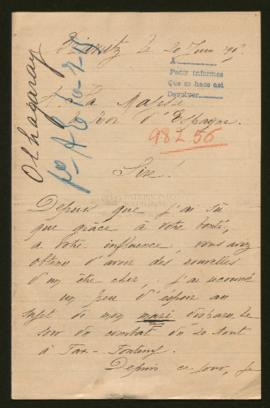 Biarritz le 20 Juin 19
A
Pedir informes
Que se hace así
Devolver
Olhagaray
A Sa Majesté
Roi d'Espagne
98 L 56
Sire
Depuis que j'ai su
que grâce à votre bonté,
à votre influence, vous avez
obtenu d'avoir des nouvelles
d'un être cher, j'ai recouvré
un peu d'espoir au
sujet de mon mari disparu le
jour du combat du 20 Août
à Fax-Fonteny.
Depuis ce jour, je